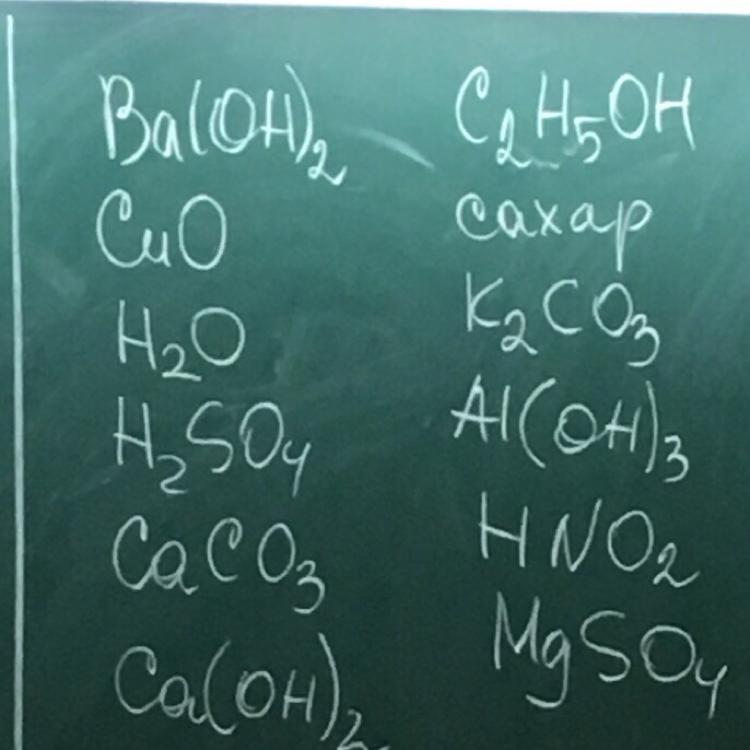 Ba(OH)₂
CuO
H₂O
H₂SO₄
CaCO₃
Ca(OH)₂
C₂H₅OH
сахар
K₂CO₃
Al(OH)₃
HNO₂
MgSO₄